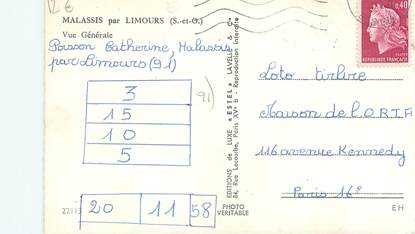 12 €
MALASSIS par LIMOURS (S.-et-O.)
Vue Générale
Poisson Catherine, Malassis
par Limours (91)
91
3
15
10
5
20 11 58
EDITIONS de LUXE « ESTEL » LAVELLE & C°
84, Rue Lecourbe, Paris XV° - Reproduction interdite
PHOTO
VERITABLE
0,40
REPUBLIQUE FRANCAISE
Loto tirlire
Maison de l'O.R.T.F
116 avenue Kennedy
Paris 16e
EH